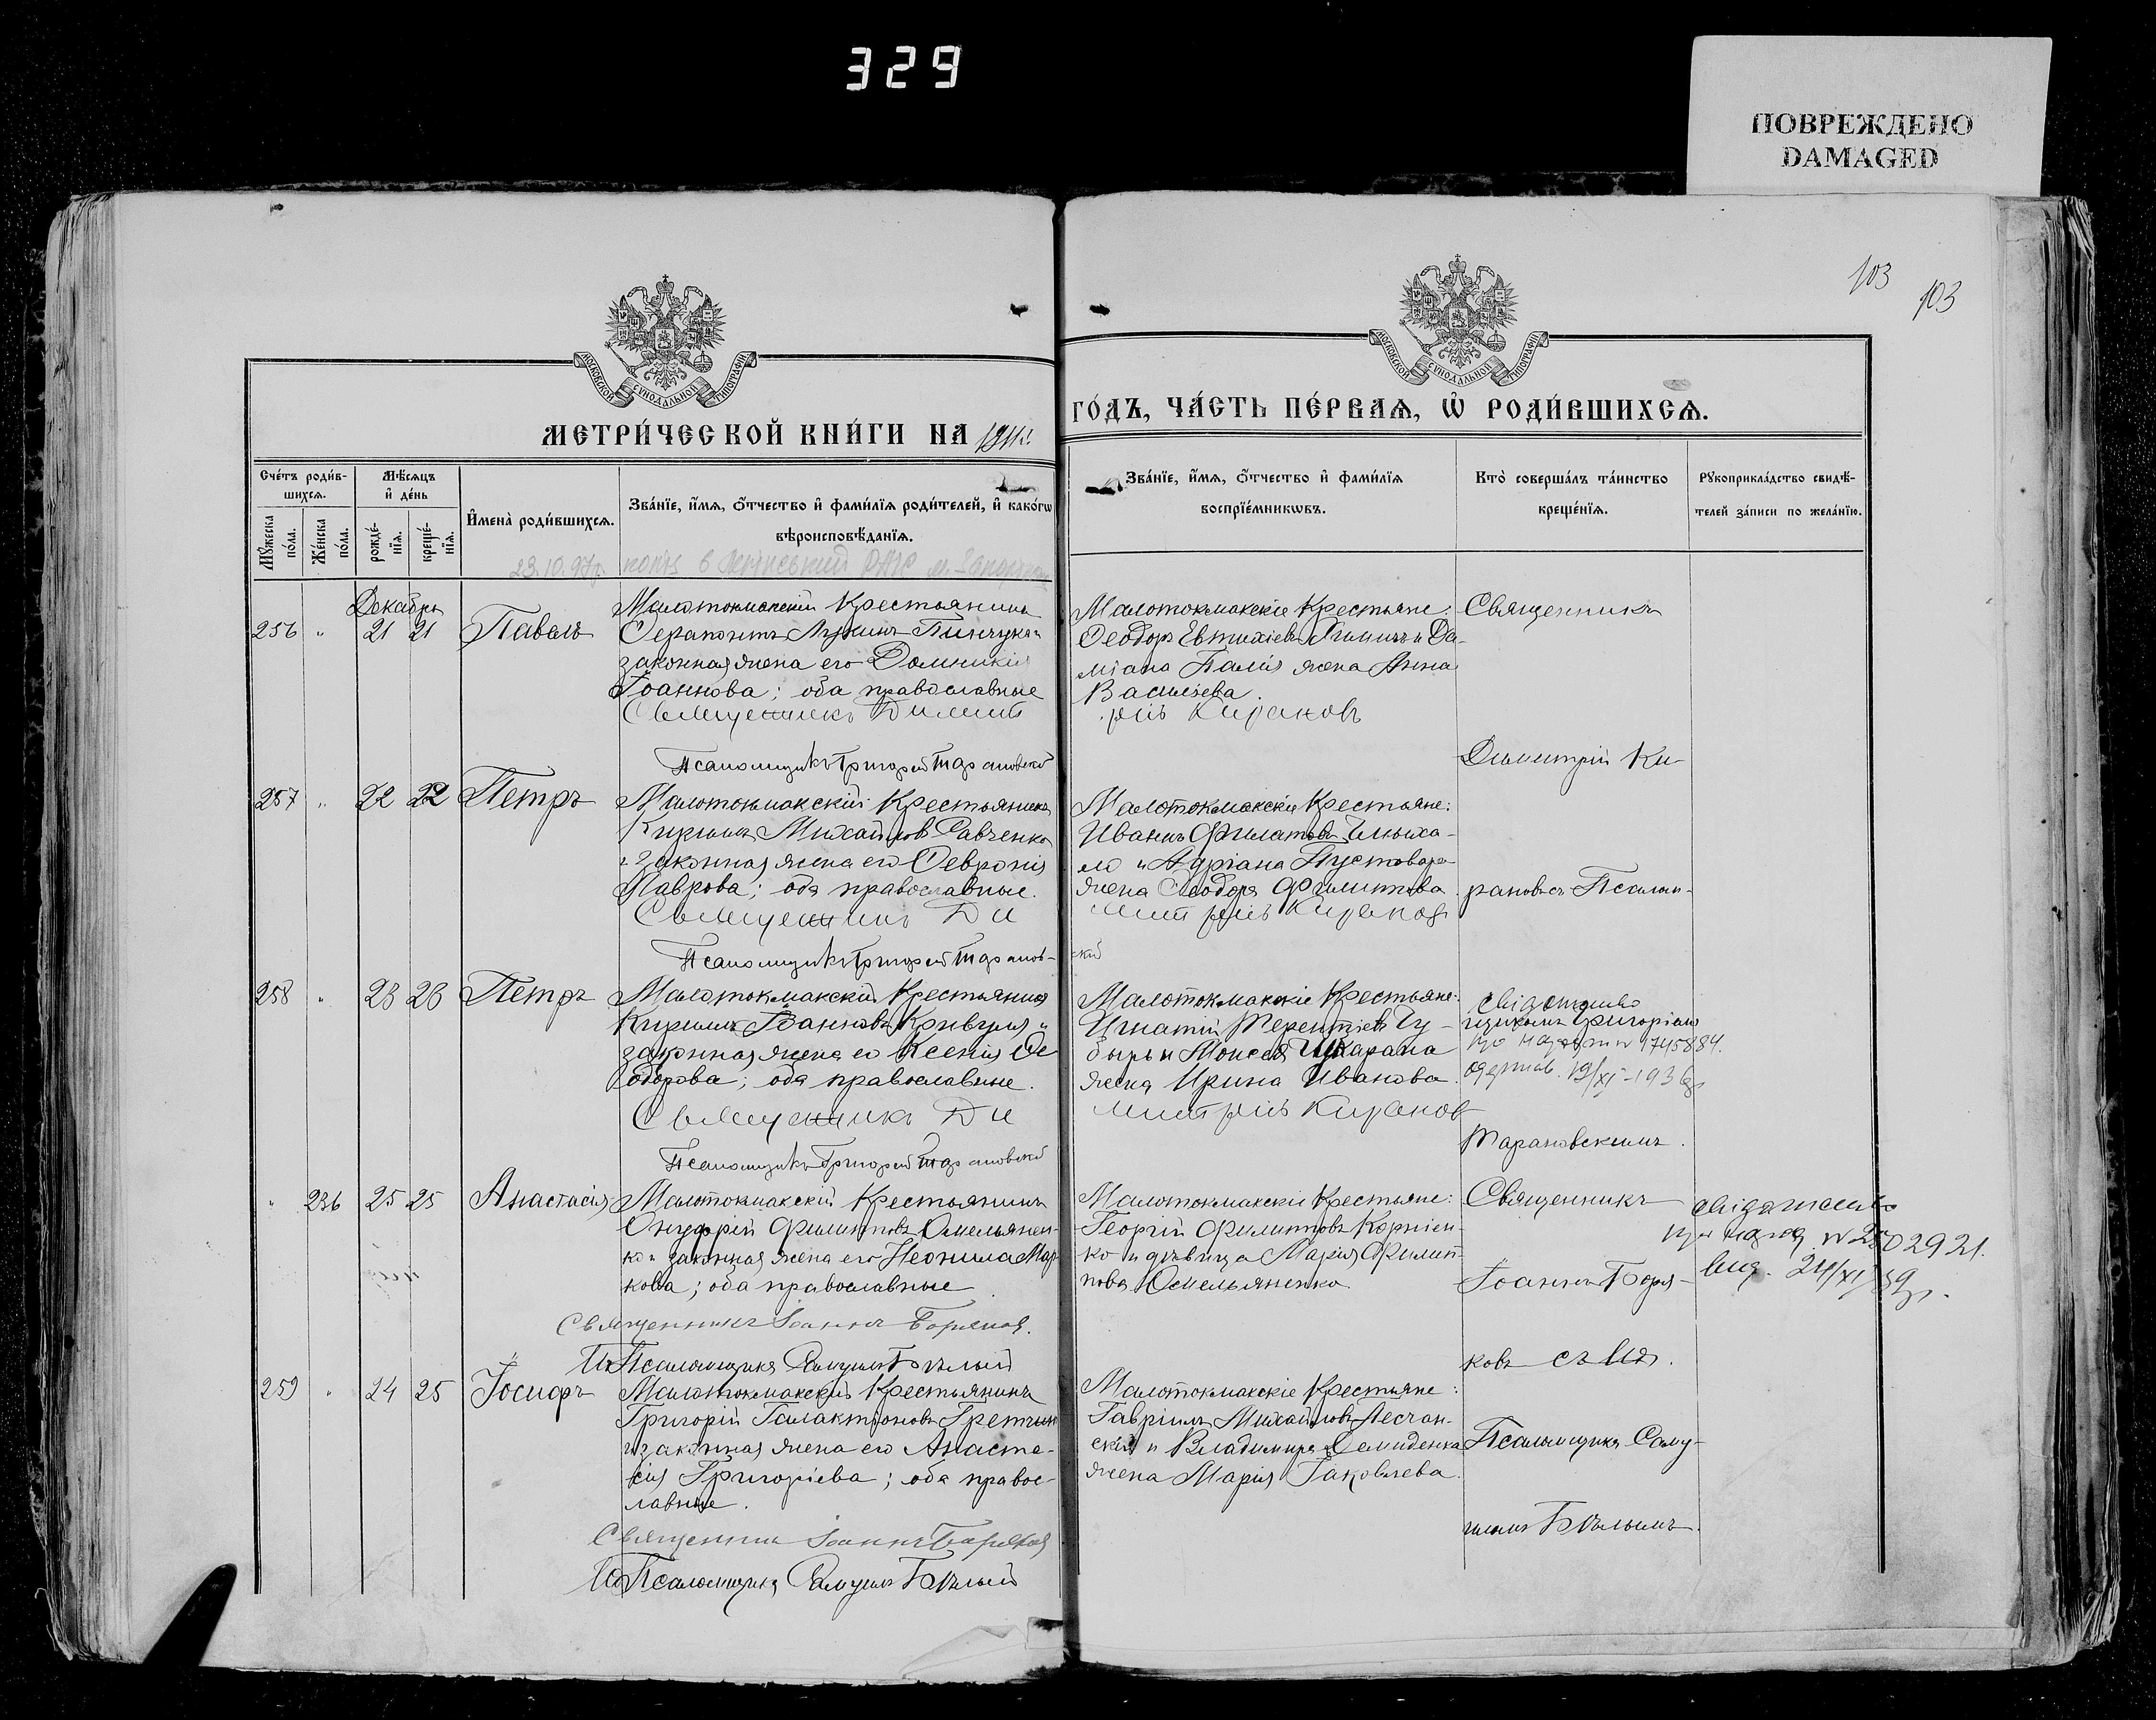 329
ПОВРЕЖДЕНО
DAMAGED
103
103
МОСКОВСКОЙ СѴНОДАЛЬНОЙ ТИПОГРАФІИ
МОСКОВСКОЙ СѴНОДАЛЬНОЙ ТИПОГРАФІИ
МЕТРИ́ЧЕСКОЙ КНИ́ГИ НА 1911 г.
ГО́ДЪ, ЧА́СТЬ ПЕ́РВАѦ, Ѡ҆ РОДИ́ВШИХСѦ.
Сче́тъ роди́в-
шихсѧ.
Мꙋ́жеска по́ла.
Же́нска по́ла.
Мѣ́сѧцъ
и҆ де́нь
рожде́-
нїѧ.
креще́-
нїѧ.
И҆мена̀ роди́вшихсѧ.
Зва́нїе, и҆́мѧ, ѻ҆́тчество и҆ фами́лїѧ роди́телей, и҆ како́гѡ
вѣроисповѣ́данїѧ.
Зва́нїе, и҆́мѧ, ѻ҆́тчество и҆ фами́лїѧ
воспрїе́мникѡвъ.
Кто̀ соверша́лъ та́инство
креще́нїѧ.
Рꙋкоприкла́дство свидѣ́-
телей за́писи по жела́нїю.
23.10.97г. копія в
Декабрь
256 " 21 21 Павелъ
Малотокмакскій Крестьянинъ
Ферапонтъ Лукинъ Пинчукъ и
законная жена его Домникія
Іоаннова; оба православные
Священникъ Димит
Псаломщикъ Григорій Тарановскій
Малотокмакскіе Крестьяне:
Феодоръ Евтихіевъ и Да-
міана Палія жена Анна
Васильева.
рій Кирановъ
Священникъ
Димитрій Ки-
257 " 22 22 Петръ
Малотокмакскій Крестьянинъ
Кириллъ Михайловъ Савченко
и законная жена его Февронія
Лаврова; оба православные.
Священникъ Ди
Псаломщикъ Григорій Таранов-
Малотокмакскіе Крестьяне:
Иванъ Филатовъ
ло и Адріана Пустовара
жена Феодора Филиппова
митрій Киранов
скій
рановъ съ Псалом-
258 " 23 26 Петръ
Малотокмакскій Крестьянинъ
Кириллъ Іоанновъ Кривуля и
законная жена его Ксенія Фе
одорова; оба православные.
Священникъ Ди
Псаломщикъ Григорій Тарановскій
Малотокмакскіе Крестьяне:
Игнатій Терентіевъ Чу-
бырь и Моисея Шкарапа
жена Ирина Иванова.
митрій Киранов
щикомъ Григоріемъ
свідотство
про народж № 1745884.
одержав. 19/XI-193
Тарановскимъ.
" 236 25 25 Анастасія
Малотокмакскій Крестьянинъ
Онуфрій Филипповъ Омельянен-
ко и законная жена его Неонила Мар-
кова; оба православные
Священникъ Іоаннъ Боряков.
Ид Псаломщика Самуилъ Бѣлый
Малотокмакскіе Крестьяне:
Георгій Филипповъ Корніен-
ко и дѣвица Марія Филип-
пова Омельяненко
Священникъ
Іоаннъ Боря-
ковъ съ Ид.
свідотство
про народ № 2502921.
вид. 24/XI 39р.
259 " 24 25 Іосифъ
Малотокмакскій Крестьянинъ
Григорій Галактіоновъ Гретчин
и законная жена его Анаста-
сія Григоріева; оба правос-
лавные.
Священникъ Іоаннъ Боряков
Ид Псаломщика Самуилъ Бѣлый
Малотокмакскіе Крестьяне:
Гавріилъ Михайловъ Песчан-
скій и Владимира Семиденка
жена Марія Іаковлева.
Псаломщика Саму-
иломъ Бѣлымъ.